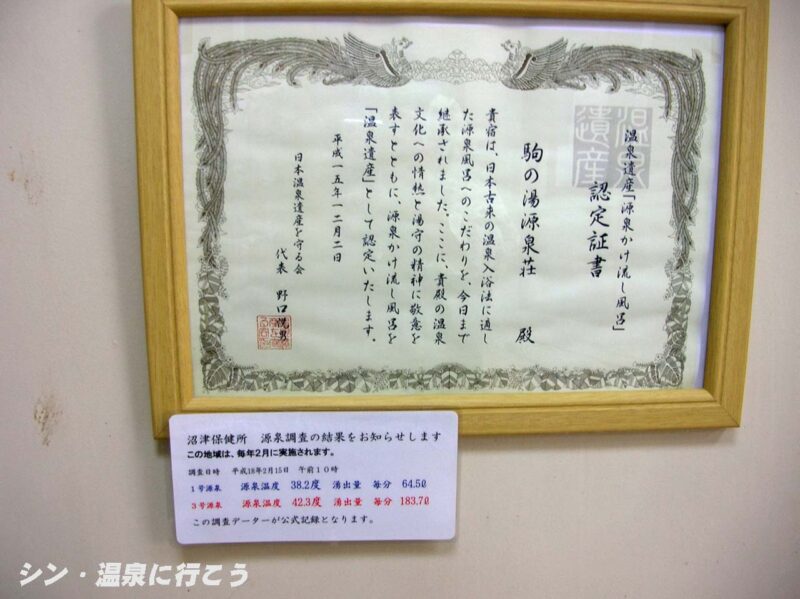 温泉遺産「源泉かけ流し風呂」
認定証書
温泉
遺産
駒の湯源泉荘 殿
貴宿は、日本古来の温泉入浴法に適し
た源泉風呂へのこだわりを、今日まで
継承されました。ここに、貴殿の温泉
文化への情熱と湯守の精神に敬意を
表すとともに、源泉かけ流し風呂を
「温泉遺産」として認定いたします。
平成一五年一二月二日
日本温泉遺産を守る会
代表 野口悦男
沼津保健所 源泉調査の結果をお知らせします
この地域は、毎年2月に実施されます。
調査日時 平成18年2月15日 午前10時
1号源泉 源泉温度 38.2度 湧出量 毎分 64.5ℓ
3号源泉 源泉温度 42.3度 湧出量 毎分 183.7ℓ
この調査データーが公式記録となります。
シン・温泉に行こう